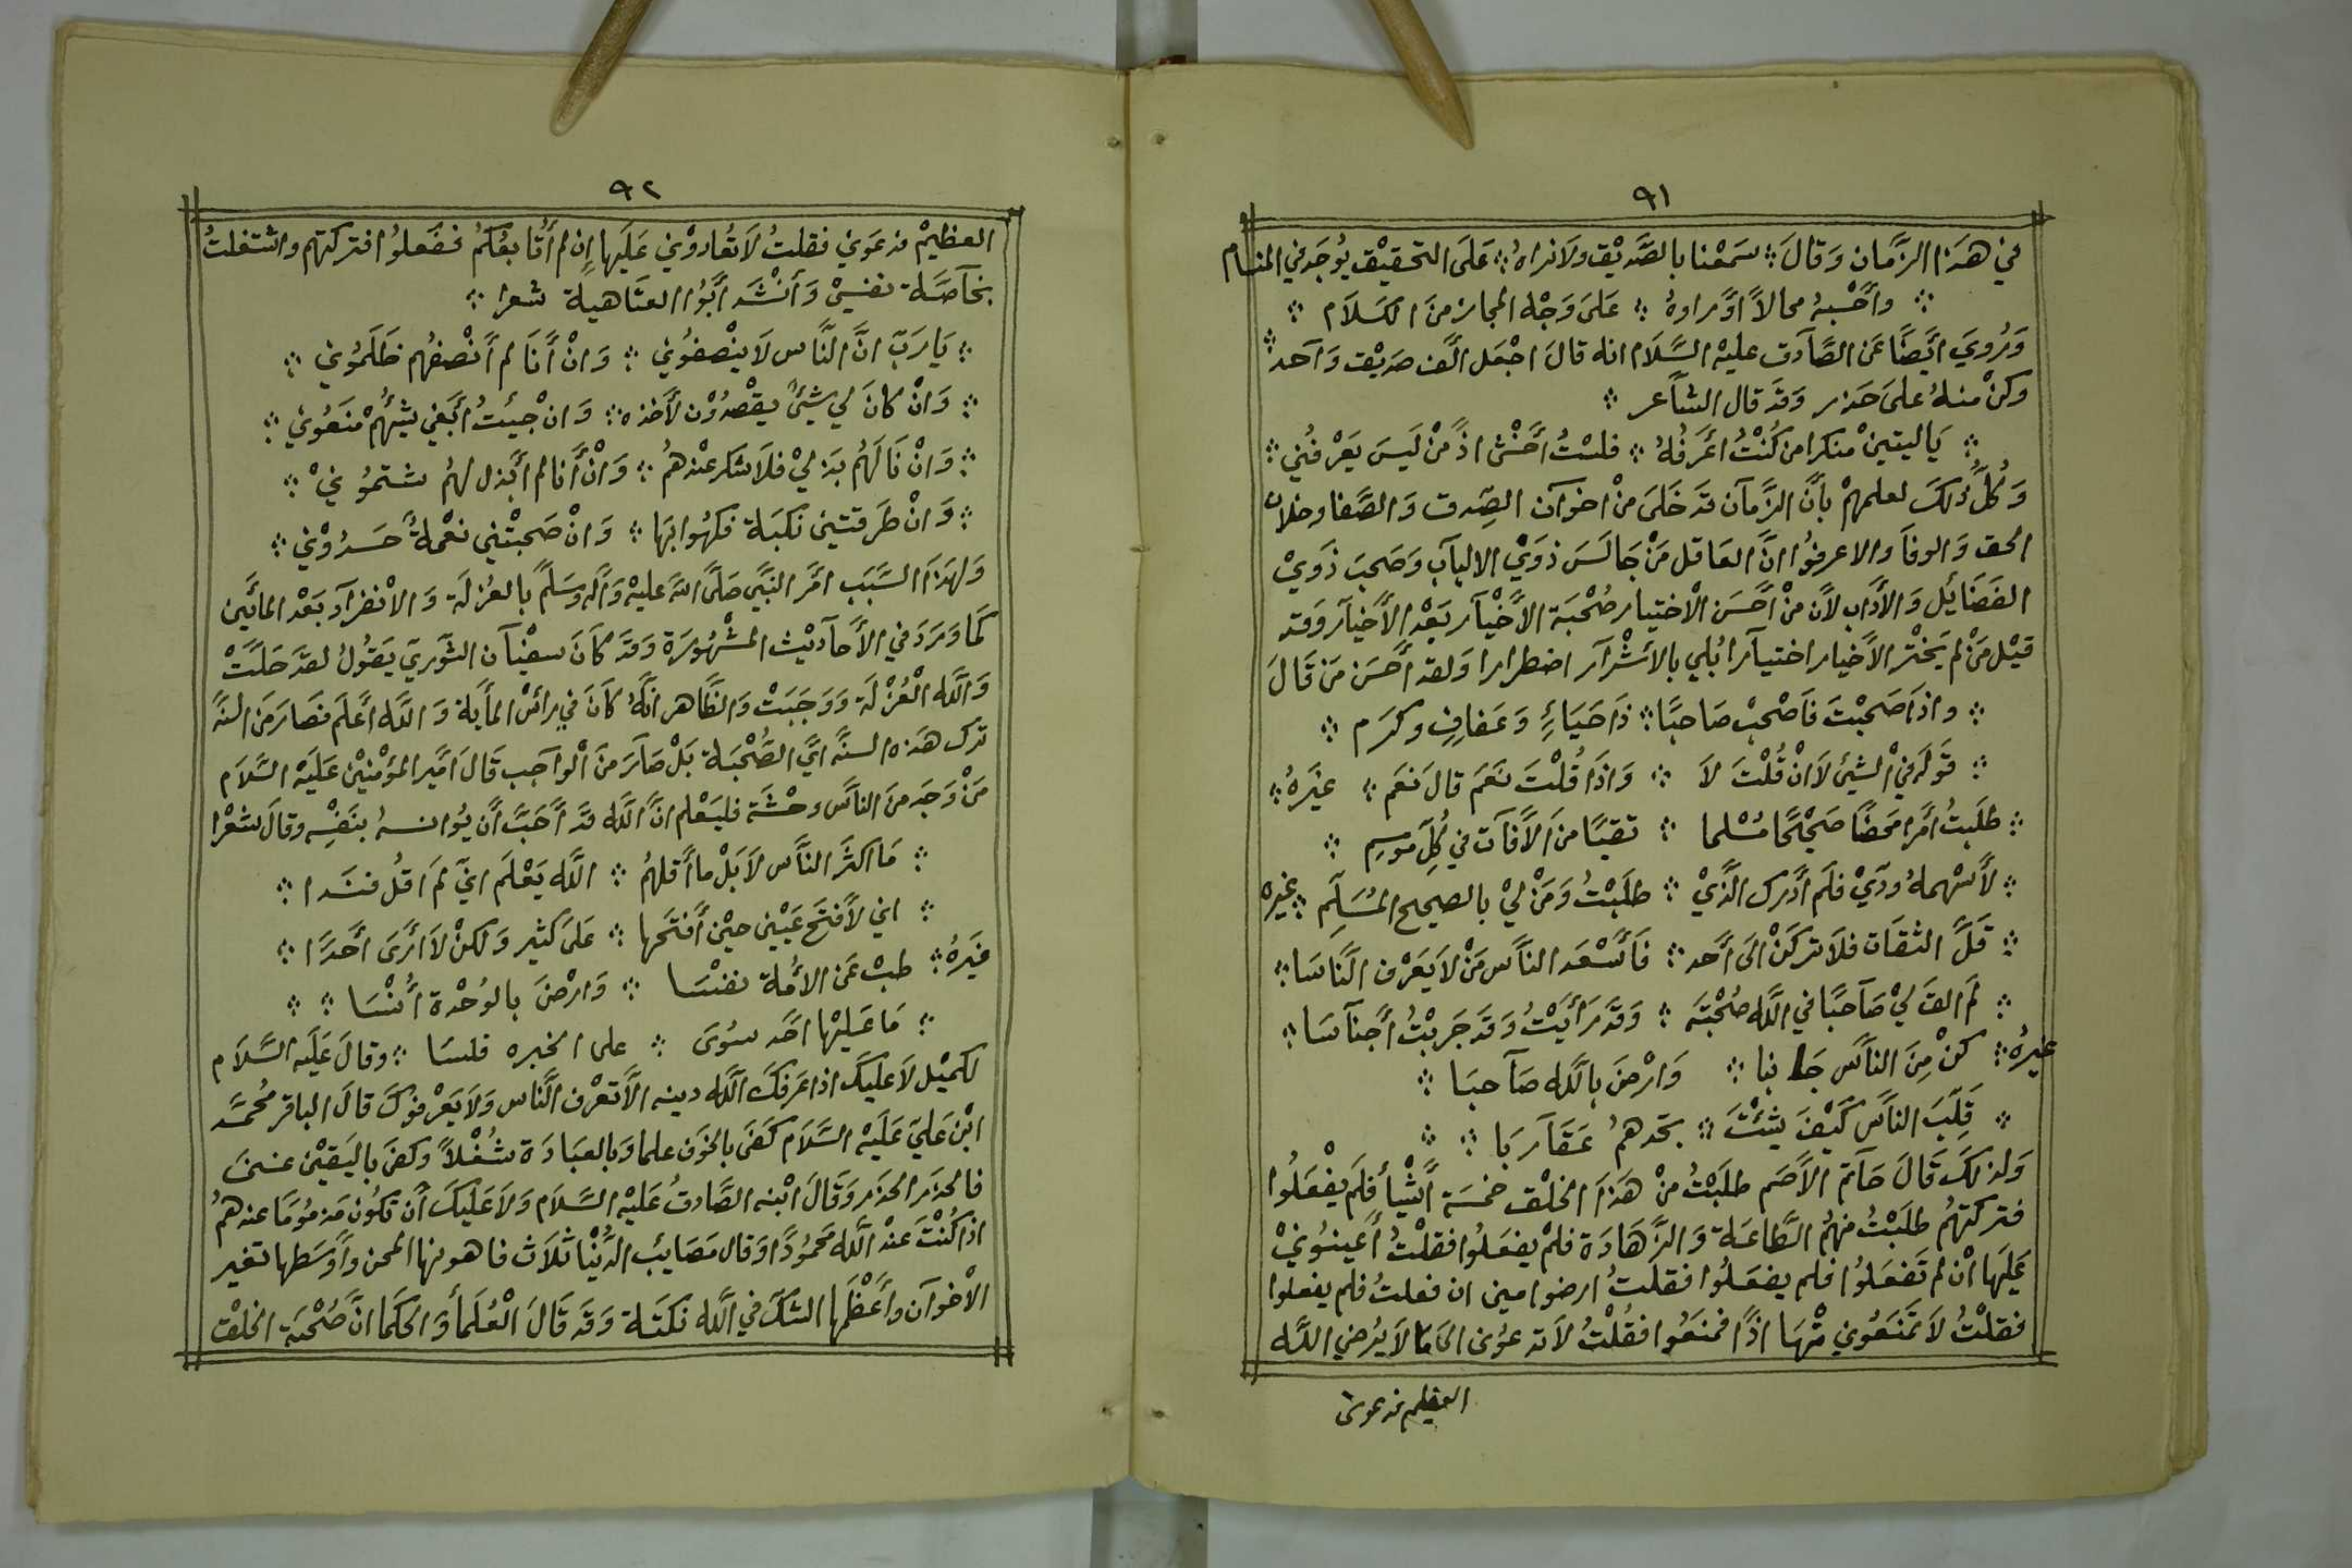 ٩١
في هَذا الزَّمان وَقالَ ؞ سَمَعْنا بالصَّديْق ولَا نراهُ ؞ عَلَى التحقيْق يُوجَد في المنام
؞ وأحْسبهُ محالاً اوَّرادهُ ؞ عَلَى وَجْه المجاز منَ الكَلَام ؞
وَرُويَ ايَضًا عَن الصَّآدق عليْه السَّلَام انه قالَ اجْعَل الَّف صديْق وَآحد ؞
وكنْ منهُ علىَ حَذر وَقَد قال الشآعر ؞
؞ يَا ليتنيْ منكرا من كُنْتُ اعَرفُهُ ؞ فلسْتُ أخْشى اذً مَنْ لَيسَ يَعْرفُني ؞
وَكُلَّ ذلكَ لعلمهمْ بأنَّ الزَّمآن قد خَلىَ منْ اخوآن الصِّدق وَالصَّفا وخلان
الحق وَالوفآ والا عرفوُا انَّ العَاقل مَنْ جَالَسَ ذوَيْ الالبآب وَصَحبَ ذَويْ
الفَضَائل وَالأدَاب لأن منْ أحَسَن الْاختيار صُحْبَة الأخْيآر بَعْد الأخيآر وَقد
قيْل مَنْ لم يَخترْ الأخيار اختيآرا بُلي بالأشْرآر اضطرارا وَلقد أحسَن مَن قَالَ
؞ واذاَ صَحبْتَ فَاصْحبْ صَاحبًا ؞ ذَا حَيَاءٍ وَعَفافٍ وكرَم ؞
؞ قَولَه في الشئ لَا انْ قُلْتَ لَا ؞ وَاذَا قُلْتَ نَعَم قالَ نَعَم ؞ غيَرهُ ؞
؞ طلَبتُ أمَرا محَضًا صَحيْحًا مُسْلما ؞ تقيًا منَ الأفآت في كُلِّ مَوسِم ؞
؞ لأسْهمهُ ودّيْ فلَم أدْرك الَّذيْ ؞ طلَبْتُ وَمَنْ ليْ بالصحيح المُسَلَّم ؞ غيره
؞ قَلَّ الثقَات فلاَ تركَنْ الَى أحَد ؞ فَأسْعَد الناَّس مَنْ لاَ يَعْرف الَّناسَا ؞
؞ لَم القَ ليْ صَآحبًا في اللَّه صُحْبَته ؞ وَقَد رَأيَتُ وَقَد جَربْتُ أجنآسَا ؞
غيرهُ ؞ كنْ مِنَ الناَّس جَانبا ؞ وَارْضَ باللَّه صَآحبَا ؞
؞ قَلِّبَ الناَّس كيَفَ شِئْتَ ؞ تجَدهمُ عَقَآرَبَا ؞ ؞
وَلذلكَ قَالَ حَآتم الأصَم طلَبْتُ منْ هَذَا الخلْق خمسَة أشْيأ فلَم يفْعَلُوا
فتركتهُم طلَبْتُ منهُم الطَّاعَة وَالزَّهَادَة فلمْ يفعَلُوا فقلْتُ أعينوُنيْ
عَلَيهَا انْ لم تَفعَلُوا فلم يفعَلُوا فقلتُ ارضوا مني ان فعلتُ فلم يفعلوا
فقلْتُ لاَ تمَنَعُوني منْهَا اذًا فمنَعُوا فقُلْتُ لاَ تدعوُني الىَ مَا لَا يُرضي اللَّه
العظيم فدعوني
٩٢
العظيمْ فدعَوني فقلتُ لَا تُعَادوْني عَلَيها إن لم أتَابعُكمُ ففَعلوُا فتركتهم واشتغلتُ
بخآصَّة نفسيْ وَأنْشَد أبُوا العتَاهية شعرا ؞
؞ يَا رَبّ انَّ النَّاس لَا ينْصفوُني ؞ وَانْ أنَا لم أنْصفهُم ظَلَموُني ؞
؞ وَانْ كانَ لي شيْئٌ يقْصدُوْن لأخذه ؞ وَانْ جيئتُ أبَغي شيْئهُمْ مَنَعُوني ؞
؞ وَانْ نَالَهُم بَذليْ فلاَ شكر عنْدهمُ ؞ وَانْ أنا لم أبذل لهُم شتَموُنيْ ؞
؞ وَانْ طَرقتني نكبَة فكهُوا بهَا ؞ وَانْ صَحبتْني نعْمةٌ حَسدُوْني ؞
وَلهَذاَ السَّبَب امَر النبَّي صَلىَّ اللَّهُ عليْه وَآله وَسَلم بالعُزلَة وَالانْفرآد بَعْد المائَين
كمَا وَرَدَ في الأحآديْث المشْهُورَة وَقَد كَانَ سفيْآن الثَّوريَ يَقوُلُ لقَد حَلَّتْ
وَاللَّه الْعُزْلَة وَوَجَبَتْ وَالظَّاهر انَّهُ كَانَ في رأسْ المأية وَاللَّه اعَلَم فصَارَ منَ السنَّه
ترك هَذه السنَّه ايَّ الصُّحْبَة بَلْ صَآرَ منَ الْوآجب قَالَ امَّير المؤمْنيْن عَلَيه السَّلَام
مَنْ وَجَد منَ الناَّس وحْشَة فليَعْلم انَّ اللَّه قَد أحَبَّ أن يُوانسهُ بنَفْسِه وقالَ شعْرا
؞ مَا اكثَر الناَّس لاَ بَلْ ما أقلهُم ؞ اللَّه يَعْلَم انيَّ لمَ اقُل فنَدا ؞
؞ اني لأفتَح عَيْني حيْن أفتَحها ؞ عَلىَ كثير وَلكنْ لاَ أرَى أحَدًا ؞
غيَرهُ ؞ طبْ عَن الأمُة نفسَا ؞ وَارْضَ بالوُحْدة أنْسَا ؞ ؞
؞ مَا عَليْها احَد سوُىَ ؞ على الخبره فلسَا ؞ وقالَ عَلَيه السَّلَام
لكميْل لاَ عليكَ اذا عَرفكَ اللَّه دينه الَّا تعْرف النَّاس وَلاَ يَعْرفوكَ قالَ الباقر مُحمَّد
ابْن عَليَ عَلَيْه السَّلَام كَفىَ بالخوف علما وَبالعبَادَة شُغْلاً وكفىَ باليَقيْن غنىَ
فالحَذر الحَذر وَقَالَ ابْنه الصَّادقُ عَليْه السَّلَام وَلاَ عَليْكَ أن تكوُن مَذموُمًا عندهمُ
اذا كُنْتَ عنْد اللَّه مَحمُودًا وَقال مَصَائب الدُّنْيا ثلَاث فاهونها المحن وَأوَسَطها تغير
الْاخوآن وأعَظَمها الشكَّ في اللَّه نكتَة وَقَد قَالَ الْعُلَمأ وَالحكَما انَّ صُحْبَة الخلْق